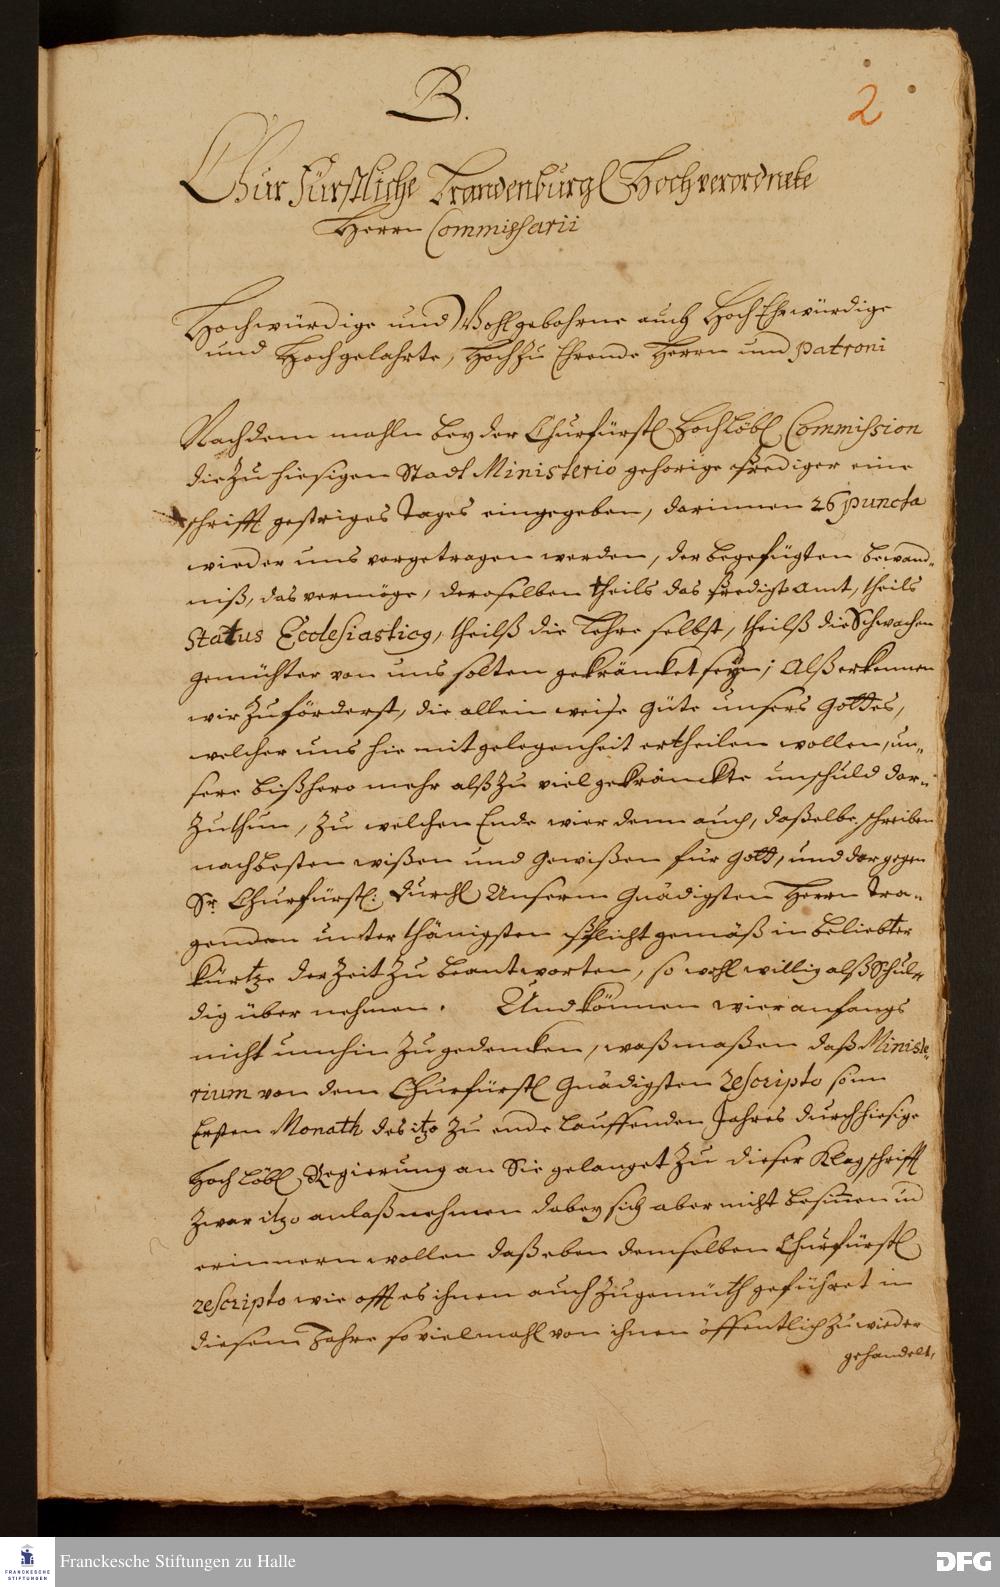 B.
2
ChurFürstliche Brandenburgl Hochverordnete
Herrn Commissarii
Hochwürdige und Wohlgebohrne auch HochEhrwürdige
und Hochgelahrte, Hochzu Ehrende Herrn und patroni
Nachdem mahln bey der Churfürstl Hochlöbl Commission
die zu hiesigen Stadt Ministerio gehorige Prediger eine
schrifft gestriges Tages eingegeben, darinnen 26 puncta
wieder uns vorgetragen werden, der begefügten bewand„
niß, das vermöge, deroselben theils das Predigt amt, theils
Status Ecclesiasticg, theilß die Lehre selbst, theilß die Schwachen
gemühter von uns solten gekräncket seyn; Alß erkennen
wir zuförderst, die allein weise Güte unsers Gottes,
welcher uns hie mit gelegenheit ertheilen wollen, un„
sere bißhero mehr alß zu viel gekränckte unschuld dar„
zuthun, zu welchen Ende wier denn auch, daßelbe schreiben
nach besten wißen und Gewißen für Gott, und dar gegen
Sr. Churfürstl. Durchl Unserm Gnädigsten Herrn tra„
genden unterthänigsten pflicht gemäß in beliebter
kürtze der Zeit zu beantworten, so wohl willig alß Schul„
dig über nehmen. Und können wier anfangs
nicht umhin zu gedencken, waßmaßen daß Ministe„
rium von dem Churfürstl Gnädigsten rescripto so im
Ersten Monath des itzo zu ende lauffenden Jahres durch hiesige
Hochlöbl Regierung an Sie gelanget zu dieser Klagschrifft
zwar itzo anlaß nehmen dabey sich aber nicht besinnen und
erinnern wollen daß eben demselben Churfürstl
rescripto wie offt es ihnen auch zugemüth geführet in
diesem Jahre so vielmahl von ihnen öffentlich zuwieder
gehandelt,
Franckesche Stiftungen zu Halle
FRANCKESCHE
STIFTUNGEN
DFG